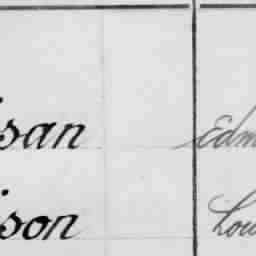 isan Edm
ison Lou